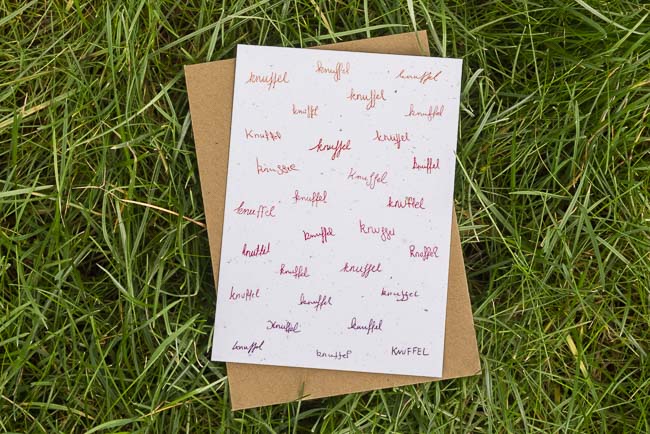 knuffel knuffel knuffel
knuffel knuffel knuffel
Knuffel knuffel knuffel
knuffel Knuffel knuffel
knuffel knuffel knuffel
knuffel knuffel knuffel Knuffel
knuffel knuffel
knuffel knuffel knuffel
Knuffel knuffel
knuffel knuffel KNUFFEL